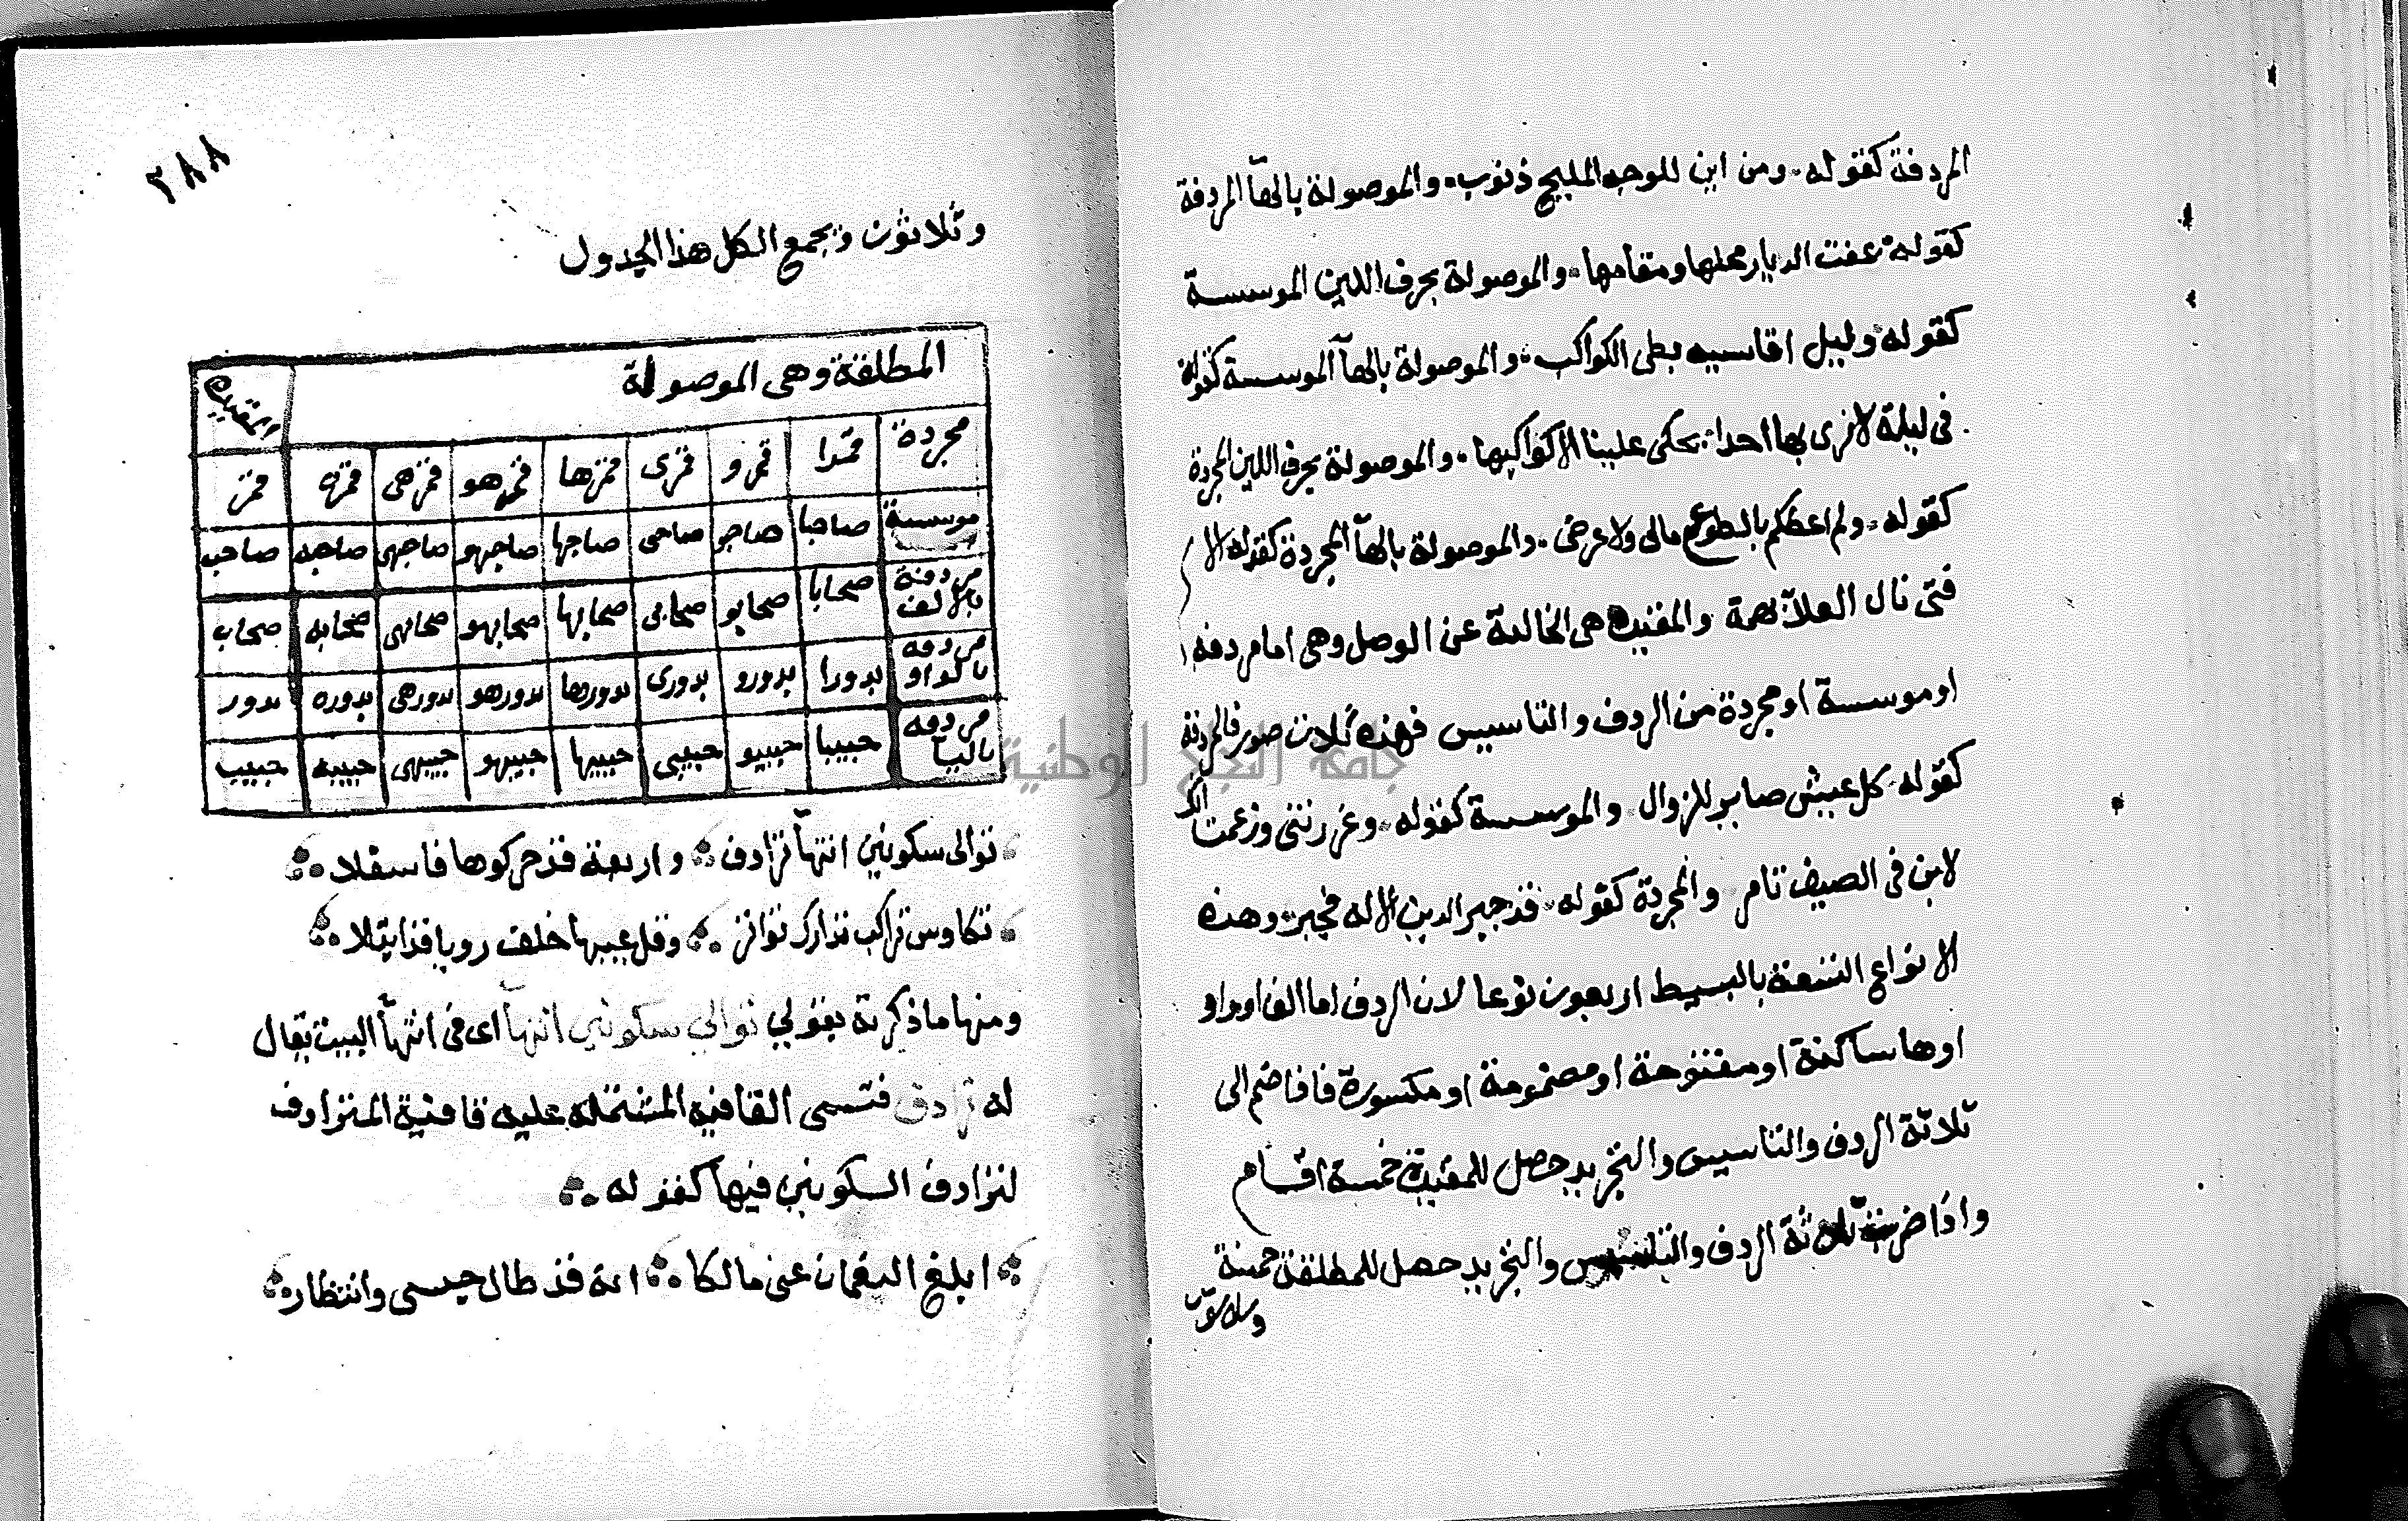 المردفة كقوله ومن اين للوجه المليح ذنوب والموصولة بالهآ المردفة
كقوله عفت الديار محلها ومقامها والموصولة بحرف اللين الموسسة
كقوله وليل اقاسيه بطى الكواكب والموصولة بالهآ الموسسة كقوله
فى ليلة لانرى بها احدا يحكى علينا الاكواكبها والموصولة بحرف اللين المجردة
كقوله ولم اعطكم بالطوع مالى ولاعرضى والموصولة بالهآ المجردة كقوله الا
فتى نال العلآ بهمة والمقيدة هى الخالية عن الوصل وهى امامردفه
اوموسسة اومجردة من الردف والتاسيس فهذه ثلاث صور فالمردفة
كقوله كل عيش صاير للزوال والموسسة كقوله وغررتنى وزعمت انك
لابن فى الصيف تامر والمجردة كقوله قد جبر الدين الاله فجبر وهذه
الانواع التسعة بالبسيط اربعون نوعا لان الردف اما الف اوواو
اوها ساكنة اومفتوحة اومضمومة اومكسورة فاذا ضم الى
ثلاثة الردف والتاسيس والتجريد حصل للمقيدة خمسة اقسام
واذا ضربت ثلاثة الردف والتاسيس والتجريد حصل للمطلقة خمسة
٣٨٨
وثلاثون ويجمع الكل هذا الجدول
المطلقة وهى الموصولة المقيدة
مجردة قمرا قمرو قمرى قمرها قمرهو قمرهى قمره قمر
موسسة صاحبا صاحبو صاحبى صاحبها صاحبهو صاحبهى صاحبه صاحب
مردفة بالالف صحابا صحابو صحابى صحابها صحابهو صحابهى صحابه صحاب
مردفه بالواو بدورا بدورو بدورى بدورها بدورهو بدورهى بدوره بدور
مردفه باليآ حبيبا حبيبو حبيبى حبيبها حبيبهو حبيبهى حبيبه حبيب
توالى سكونين انتهآ ترادف واربعة قد حركوها فاسفلا
تكاوس تراكب تدارك تواتر وقل عيبها خلف رويا قد ابتلا
ومنها ماذكرته بقولي توالي سكونين انتهآ اى فى انتهآ البيت يقال
له ترادف فتسمى القافيه المشتمله عليه قافية المترادف
لترادف السكونين فيها كقوله
ابلغ النعمان عنى مالكا انه قد طال حبسى وانتظار
جامعة النجاح الوطنية